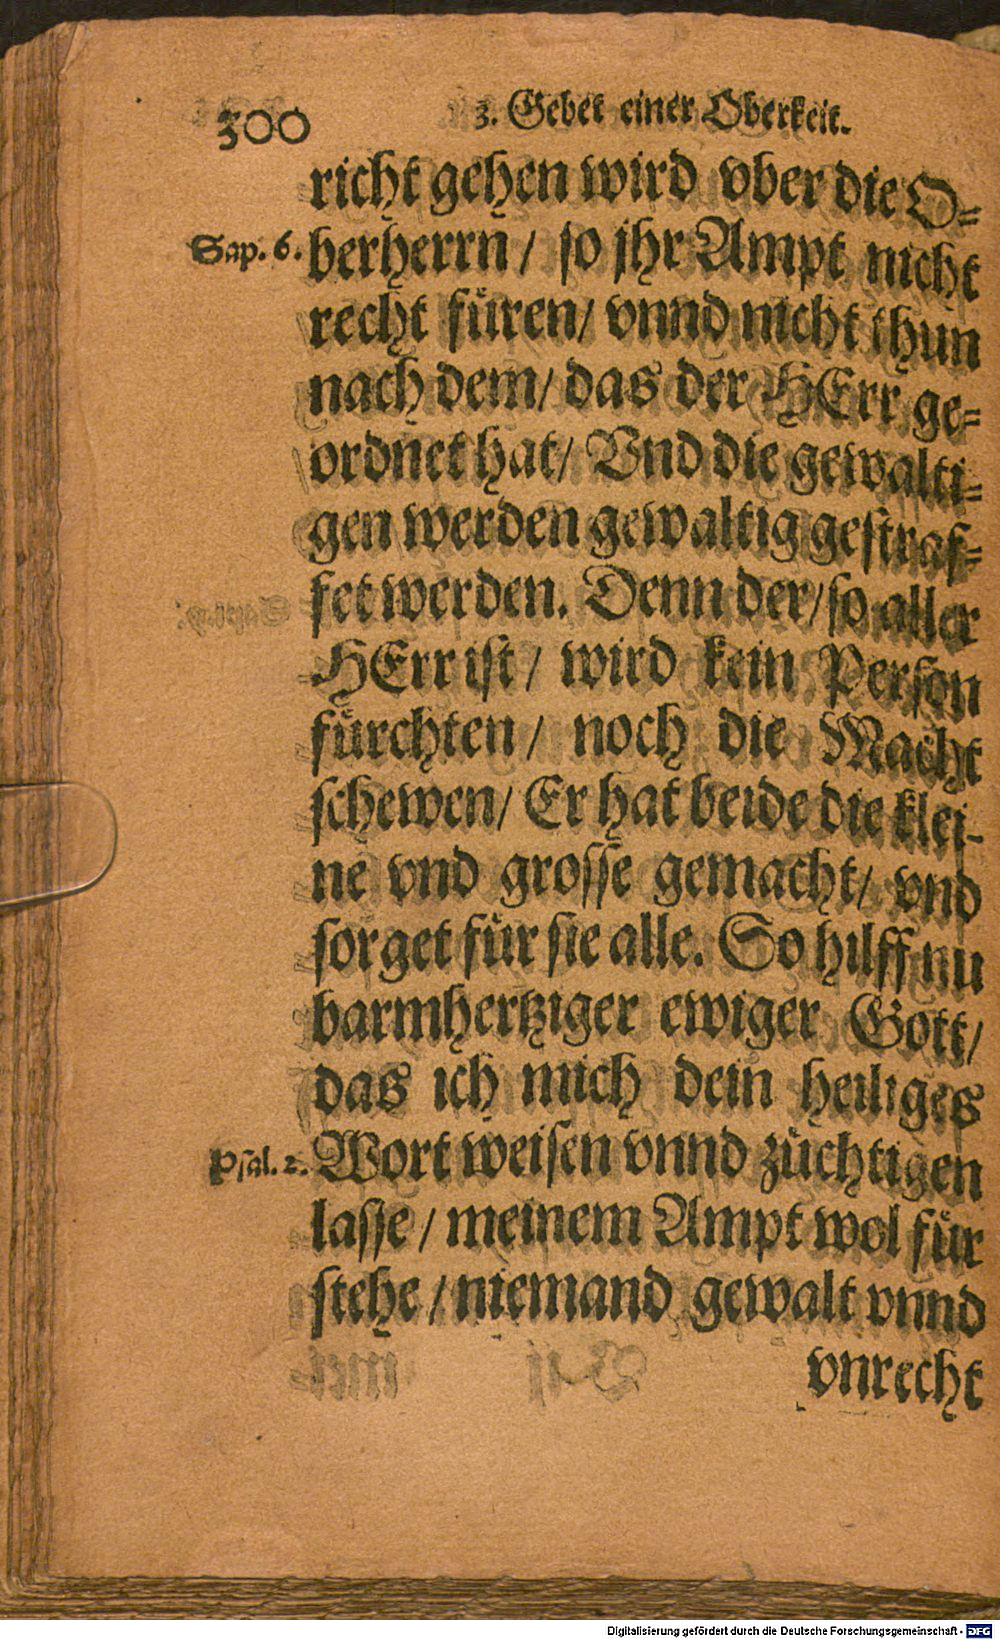 300 3. Gebet einer Oberkeit.
richt gehen wird vber die O-
Sap. 6. berherrn / so jhr Ampt nicht
recht füren / vnnd nicht thun
nach dem / das der HErr ge-
ordnet hat / Vnd die gewalti-
gen werden gewaltig gestraf-
fet werden. Denn der / so aller
HErr ist / wird kein Person
fürchten / noch die Macht
schewen / Er hat beide die klei-
ne vnd grosse gemacht / vnd
sorget für sie alle. So hilff nu
barmhertziger ewiger Gott /
das ich mich dein heiliges
Psal. 2. Wort weisen vnnd züchtigen
lasse / meinem Ampt wol für
stehe / niemand gewalt vnnd
vnrecht
Digitalisierung gefördert durch die Deutsche Forschungsgemeinschaft - DFG